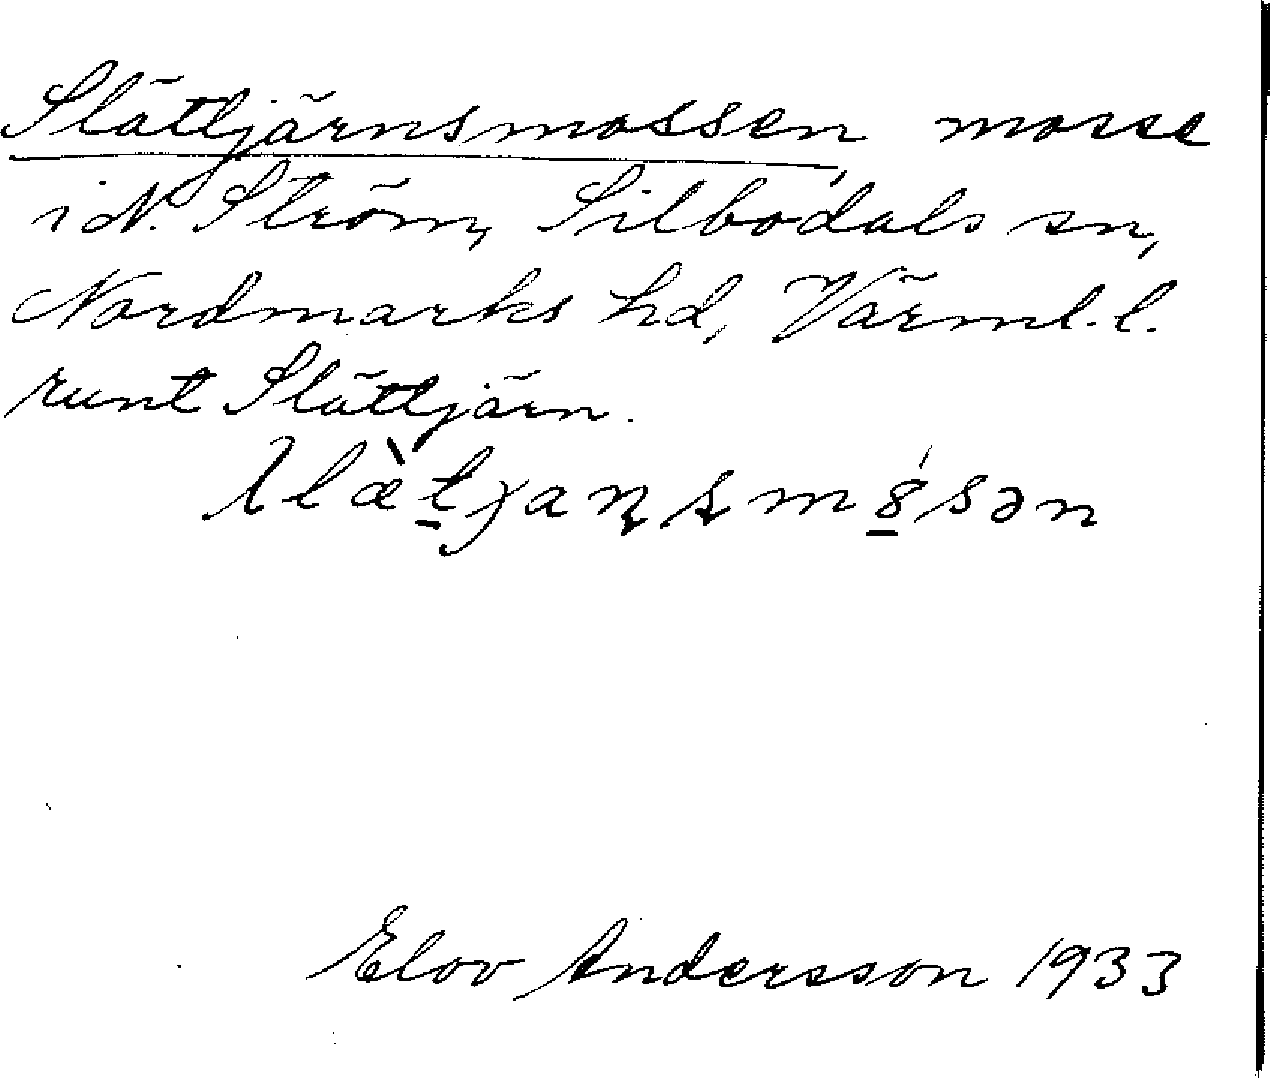 Slättjärnsmossen, mosse
i N. Ström, Silbodals sn,
Nordmarks hd, Värml. l.
runt Slättjärn.
Elov Andersson 1933